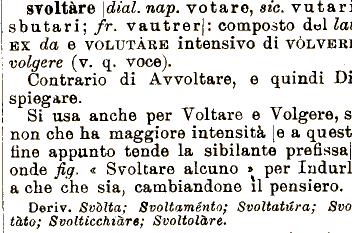 svoltàre |dial. nap. votare, sic. vutari
sbutari; fr. vautrer|: composto del lat
EX da e VOLUTÀRE intensivo di VÒLVERE
volgere (v. q. voce).
Contrario di Avvoltare, e quindi Di
spiegare.
Si usa anche per Voltare e Volgere, s
non che ha maggiore intensità |e a quest
fine appunto tende la sibilante prefissa|
onde fig. « Svoltare alcuno » per Indurl
a che che sia, cambiandone il pensiero.
Deriv. Svòlta; Svoltaménto; Svoltatúra; Svo
tàto; Svolticchiàre; Svoltolàre.